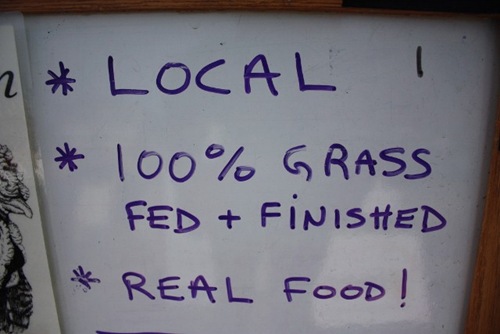 * LOCAL
* 100% GRASS
FED + FINISHED
* REAL FOOD!